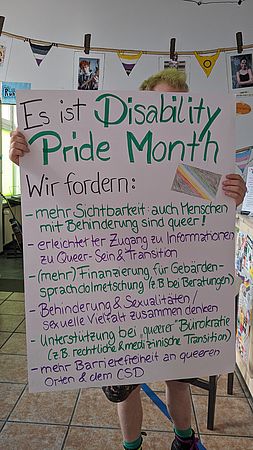 Es ist Disability
Pride Month
Wir fordern:
- mehr Sichtbarkeit: auch Menschen
mit Behinderung sind queer!
- erleichterter Zugang zu Informationen
zu Queer-Sein & Transition
- (mehr) Finanzierung für Gebärden-
sprachdolmetschung (z.B. bei Beratungen)
- Behinderung & Sexualitäten/
sexuelle Vielfalt zusammen denken
- Unterstützung bei "queerer" Bürokratie
(z.B. rechtliche & medizinische Transition)
- mehr Barrierefreiheit an queeren
Orten & dem CSD